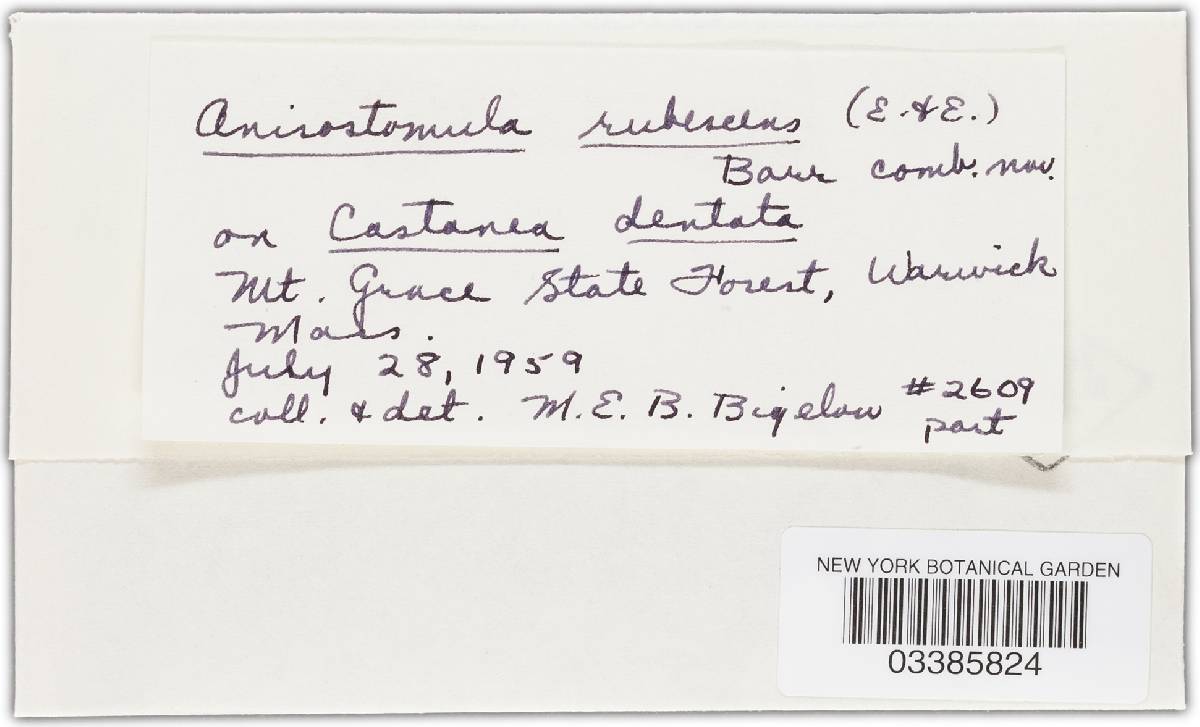 Anisostomula rubescens (E. & E.)
Barr comb. nov.
on Castanea dentata
Mt. Grace State Forest, Warwick
Mass.
July 28, 1959
coll. & det. M. E. B. Bigelow #2609
part
NEW YORK BOTANICAL GARDEN
03385824